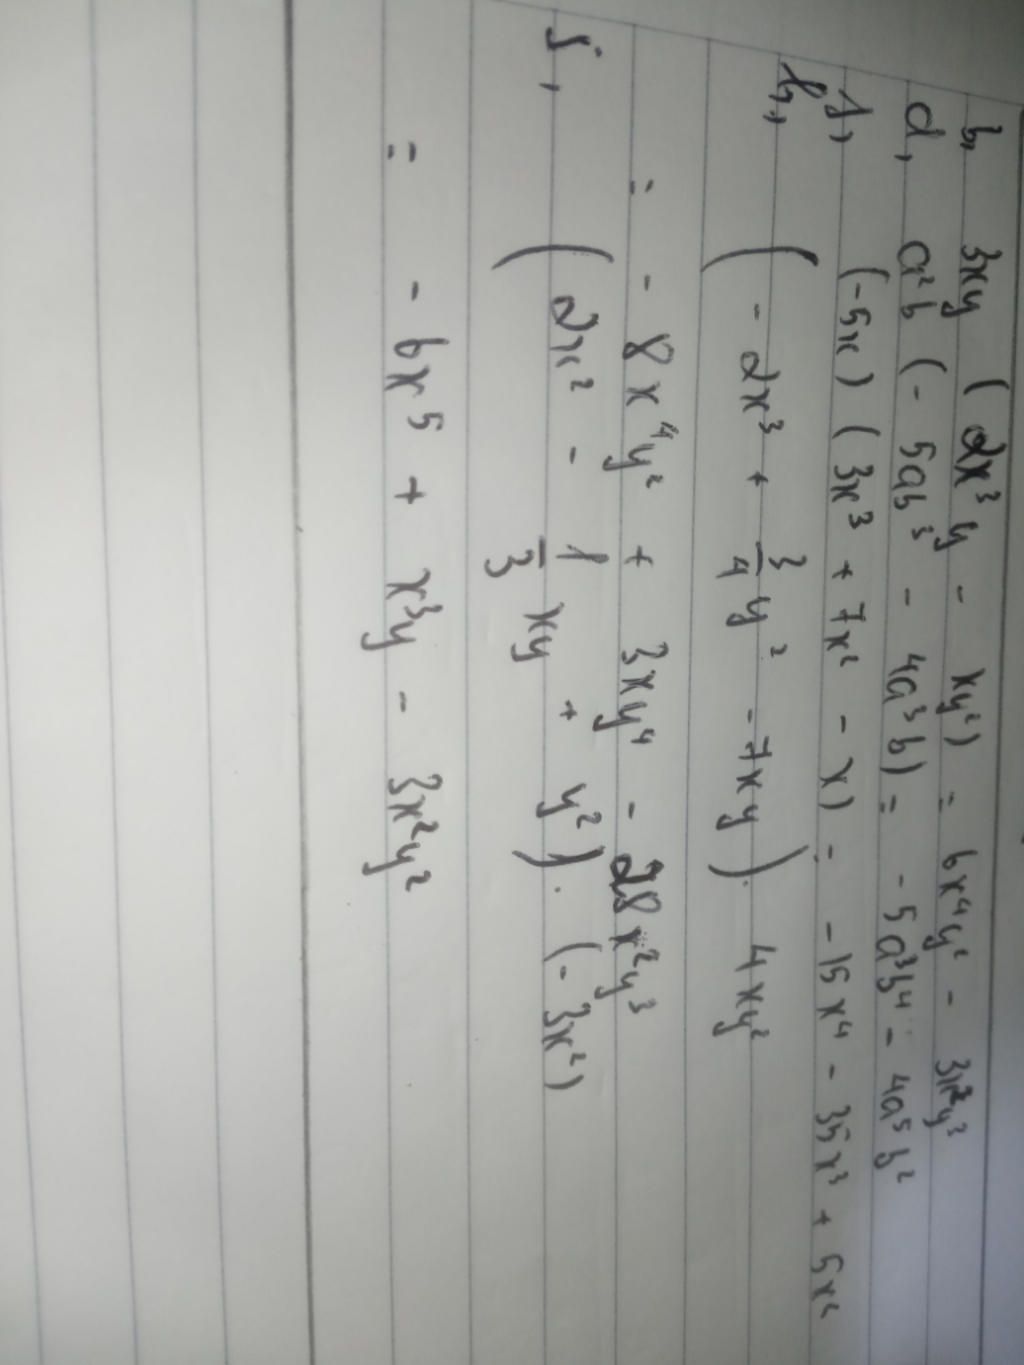 b, 3xy (2x³y - xy²) = 6x⁴y² - 3x²y³
d, a²b (- 5ab³ - 4a³b) = - 5a³b⁴ - 4a⁵b²
f, (-5x) (3x³ + 7x² - x) = -15x⁴ - 35x³ + 5x²
h, (- 2x³ + 3/4 y² - 7xy). 4xy²
= - 8x⁴y² + 3xy⁴ - 28x²y³
j, (2x² - 1/3 xy + y²). (- 3x²)
= - 6x⁵ + x³y - 3x²y²